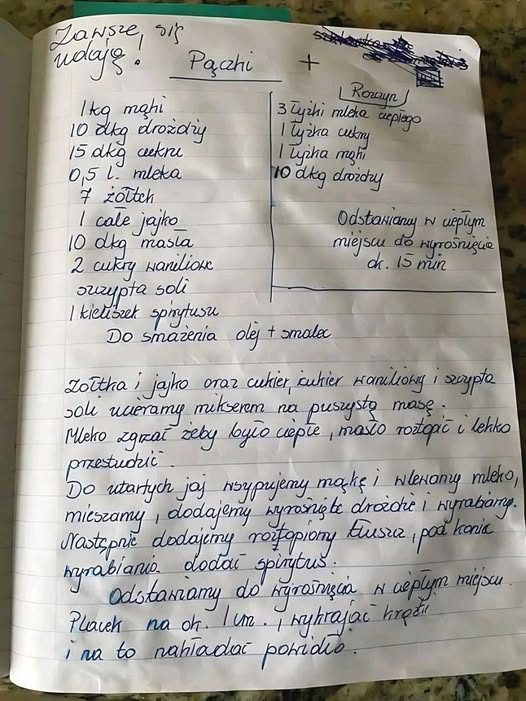 Zawsze, się
udają!
Pączki +
1 kg mąki
10 dkg drożdży
15 dkg cukru
0,5 l. mleka
7 żółtek
1 całe jajko
10 dkg masła
2 cukry waniliowe
szczypta soli
1 kieliszek spirytusu
Do smażenia olej + smalec
Rozczyn
3 łyżki mleka ciepłego
1 łyżka cukru
1 łyżka mąki
10 dkg drożdży
Odstawiamy w ciepłym
miejscu do wyrośnięcia
ok. 15 min
Żółtka i jajko oraz cukier, cukier waniliowy i szczypta
soli ucieramy mikserem na puszystą masę.
Mleko zgrzać żeby było ciepłe, masło roztopić i lekko
przestudzić.
Do utartych jaj wsypujemy mąkę i wlewamy mleko,
mieszamy, dodajemy wyrośnięte drożdże i wyrabiamy.
Następnie dodajemy roztopiony tłuszcz, pod koniec
wyrabiania dodać spirytus.
Odstawiamy do wyrośnięcia w ciepłym miejscu.
Placek na ok. 1 cm. wykrajać krążki
i na to nakładać powidło.